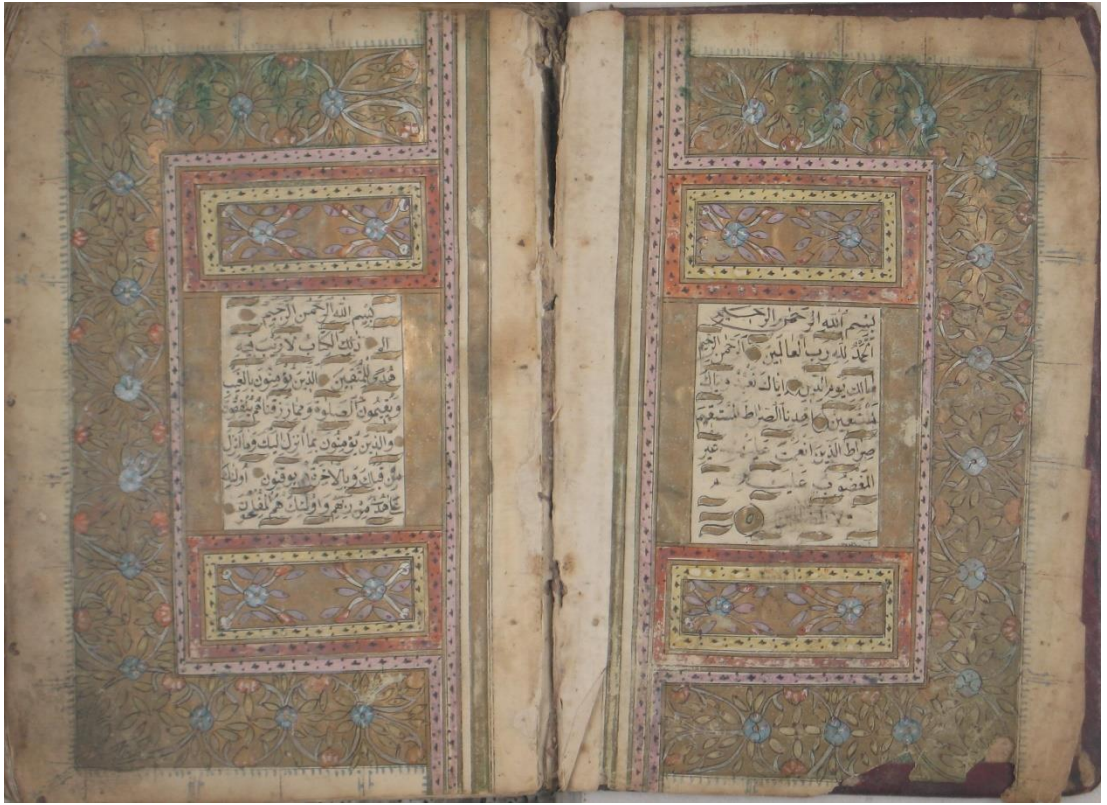 بِسْمِ اللّٰهِ الرَّحْمٰنِ الرَّحِيمِ
اَلْحَمْدُ لِلّٰهِ رَبِّ الْعَالَمِينَ الرَّحْمٰنِ الرَّحِيمِ
مَالِكِ يَوْمِ الدِّينِ اِيَّاكَ نَعْبُدُ وَاِيَّاكَ
نَسْتَعِينُ اِهْدِنَا الصِّرَاطَ الْمُسْتَقِيمَ
صِرَاطَ الَّذِينَ اَنْعَمْتَ عَلَيْهِمْ غَيْرِ
الْمَغْضُوبِ عَلَيْهِمْ
بِسْمِ اللّٰهِ الرَّحْمٰنِ الرَّحِيمِ
الم ذٰلِكَ الْكِتَابُ لَا رَيْبَ فِيهِ
هُدًى لِلْمُتَّقِينَ الَّذِينَ يُؤْمِنُونَ بِالْغَيْبِ
وَيُقِيمُونَ الصَّلٰوةَ وَمِمَّا رَزَقْنَاهُمْ يُنْفِقُونَ
وَالَّذِينَ يُؤْمِنُونَ بِمَا اُنْزِلَ اِلَيْكَ وَمَا اُنْزِلَ
مِنْ قَبْلِكَ وَبِالْاٰخِرَةِ هُمْ يُوقِنُونَ اُولٰئِكَ
عَلٰى هُدًى مِنْ رَبِّهِمْ وَاُولٰئِكَ هُمُ الْمُفْلِحُونَ